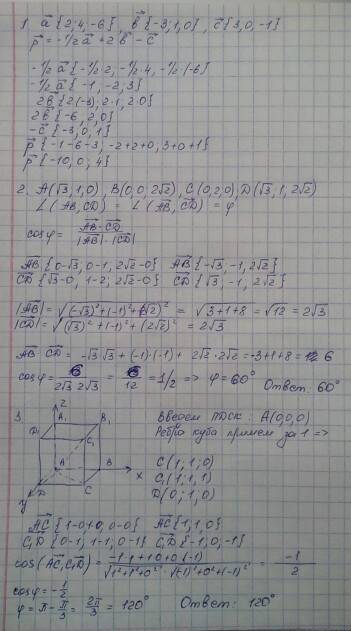 1. a⃗{2;4;-6}, b⃗{-3;1;0}, c⃗{3,0,-1}
p⃗ = -1/2a⃗ + 2b⃗ - c⃗
-1/2a⃗ {-1/2·2, -1/2·4, -1/2·(-6)}
-1/2a⃗ {-1, -2, 3}
2b⃗ {2(-3), 2·1, 2·0}
2b⃗ {-6, 2, 0}
-c⃗ {-3, 0, 1}
p⃗ {-1-6-3; -2+2+0; 3+0+1}
p⃗ {-10, 0; 4}
2. A(√3,1,0), B(0,0,2√2), C(0,2,0), D(√3,1,2√2)
∠(AB,CD) = ∠(AB,CD) = φ
cosφ = AB·CD / |AB|·|CD|
AB{0-√3, 0-1, 2√2-0} AB{-√3, -1, 2√2}
CD{√3-0, 1-2; 2√2-0} CD{√3, -1, 2√2}
|AB| = √(-√3)²+(-1)²+(2√2)² = √3+1+8 = √12 = 2√3
|CD| = √(√3)²+(-1)²+(2√2)² = 2√3
AB·CD = -√3·√3 + (-1)·(-1) + 2√2·2√2 = -3+1+8 = 6
cosφ = 6/2√3·2√3 = 6/12 = 1/2 => φ=60° Ответ: 60°
3. z
A₁ B₁
D₁ C₁
A B x
D C
y
Введем ПДСК: A(0,0,0)
Ребро куба примем за 1 =>
C(1;1;0)
C₁(1;1;1)
D(0;1;0)
AC{1-0, 1-0, 0-0} AC{1;1;0}
C₁D{0-1, 1-1, 0-1} C₁D{-1,0,-1}
cos(AC,C₁D) = -1·1+1·0+0·(-1) / √1²+1²+0² · √(-1)²+0²+(-1)² = -1/2
cosφ = -1/2
φ = π - π/3 = 2π/3 = 120° Ответ: 120°